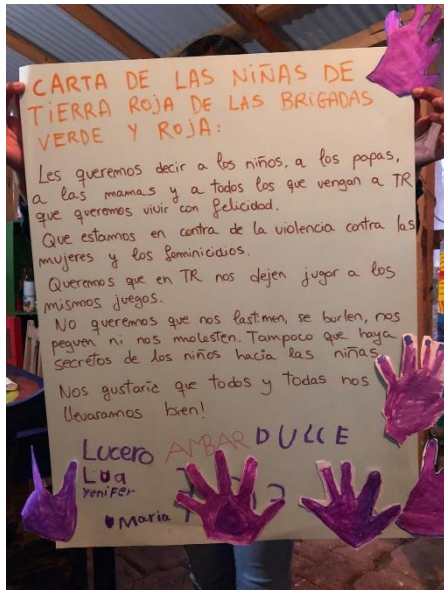 CARTA DE LAS NIÑAS DE
TIERRA ROJA DE LAS BRIGADAS
VERDE Y ROJA:
Les queremos decir a los niños, a los papas,
a las mamas y a todos los que vengan a TR
que queremos vivir con felicidad.
Que estamos en contra de la violencia contra las
mujeres y los feminicidios.
Queremos que en TR nos dejen jugar a los
mismos juegos.
No queremos que nos lastimen, se burlen, nos
peguen ni nos molesten. Tampoco que haya
secretos de los niños hacia las niñas
Nos gustaría que todos y todas nos
llevaramos bien!
Lucero AMBAR DULCE
Lua
Yenifer
Maria